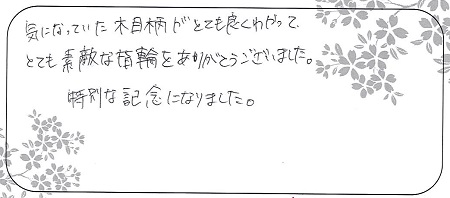 気になっていた木目柄がとても良くわかって、
とても素敵な指輪をありがとうございました。
特別な記念になりました。